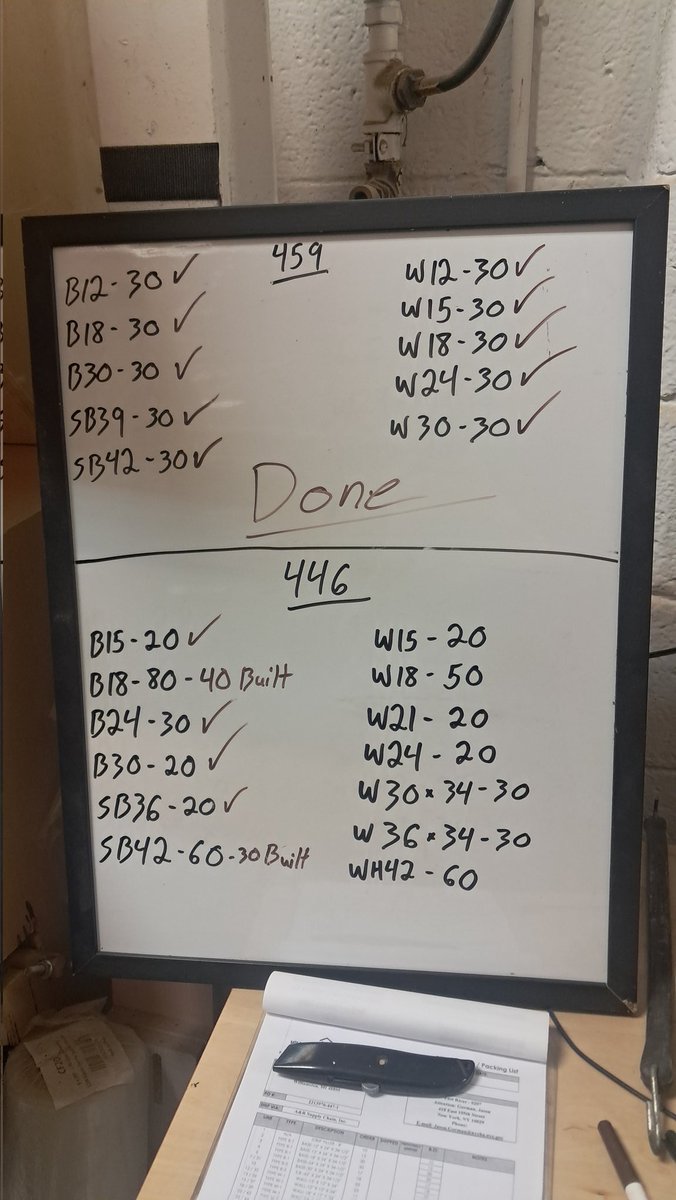 459
B12-30✓
B18-30✓
B30-30✓
SB39-30✓
SB42-30✓
W12-30✓
W15-30✓
W18-30✓
W24-30✓
W30-30✓
Done
446
B15-20✓
B18-80-40 Built
B24-30✓
B30-20✓
SB36-20✓
SB42-60-30 Built
W15-20
W18-50
W21-20
W24-20
W30×34-30
W36×34-30
WH42-60
Packing List